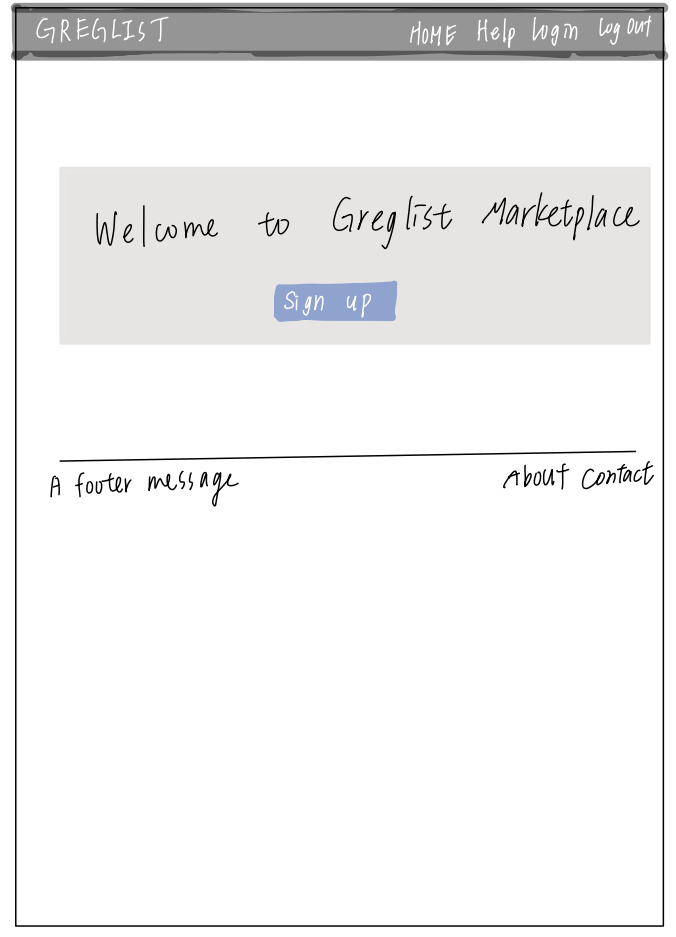 GREGLIST HOME Help Login Log Out
Welcome to Greglist Marketplace
Sign up
A footer message About Contact